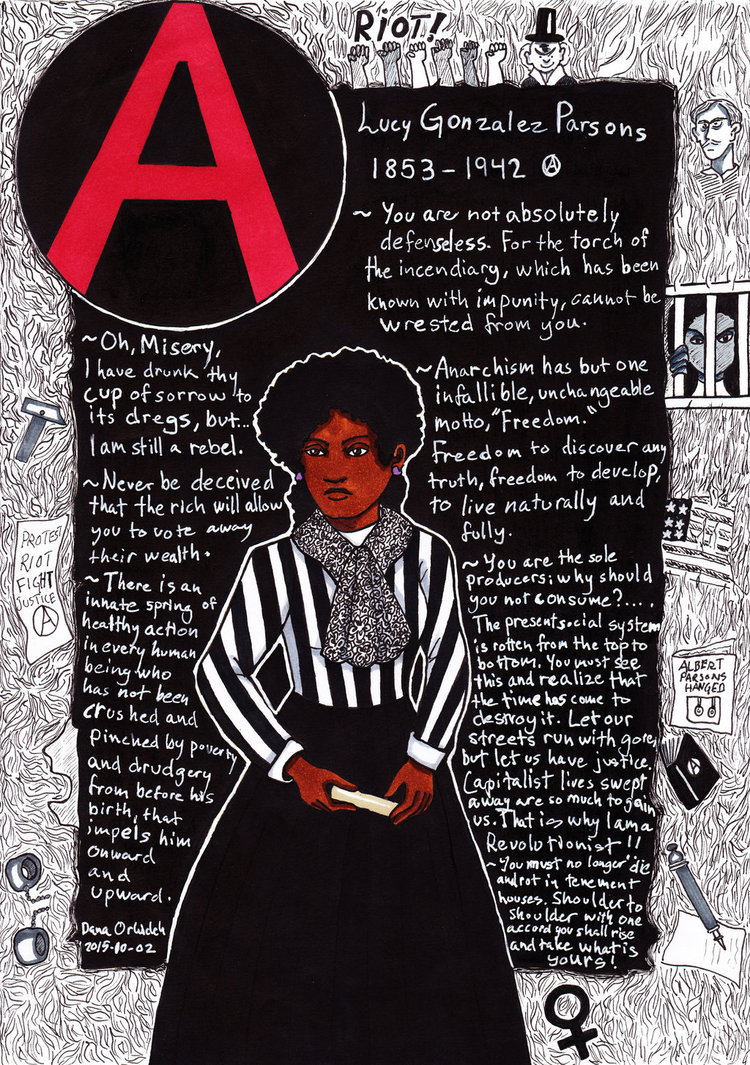 RIOT!
A
Lucy Gonzalez Parsons
1853-1942 Ⓐ
~ You are not absolutely
defenseless. For the torch of
the incendiary, which has been
known with impunity, cannot be
wrested from you.
~Oh, Misery,
I have drunk thy
cup of sorrow to
its dregs, but...
I am still a rebel.
~Never be deceived
that the rich will allow
you to vote away
their wealth.
~There is an
innate spring of
healthy action
in every human
being who
has not been
crushed and
pinched by poverty
and drudgery
from before his
birth, that
impels him
onward
and
upward.
~Anarchism has but one
infallible, unchangeable
motto, "Freedom."
Freedom to discover any
truth, freedom to develop,
to live naturally and
fully.
~You are the sole
producers; why should
you not consume?....
The present social system
is rotten from the top to
bottom. You must see
this and realize that
the time has come to
destroy it. Let our
streets run with gore
but let us have justice
Capitalist lives swept
away are so much to gain
us. That is why I am a
Revolutionist!!
~You must no longer die
and rot in tenement
houses. Shoulder to
shoulder with one
accord you shall rise
and take what is
yours!
PROTEST
RIOT
FIGHT
JUSTICE
Ⓐ
ALBERT
PARSONS
HANGED
Ⓐ
Dana
2015-10-02